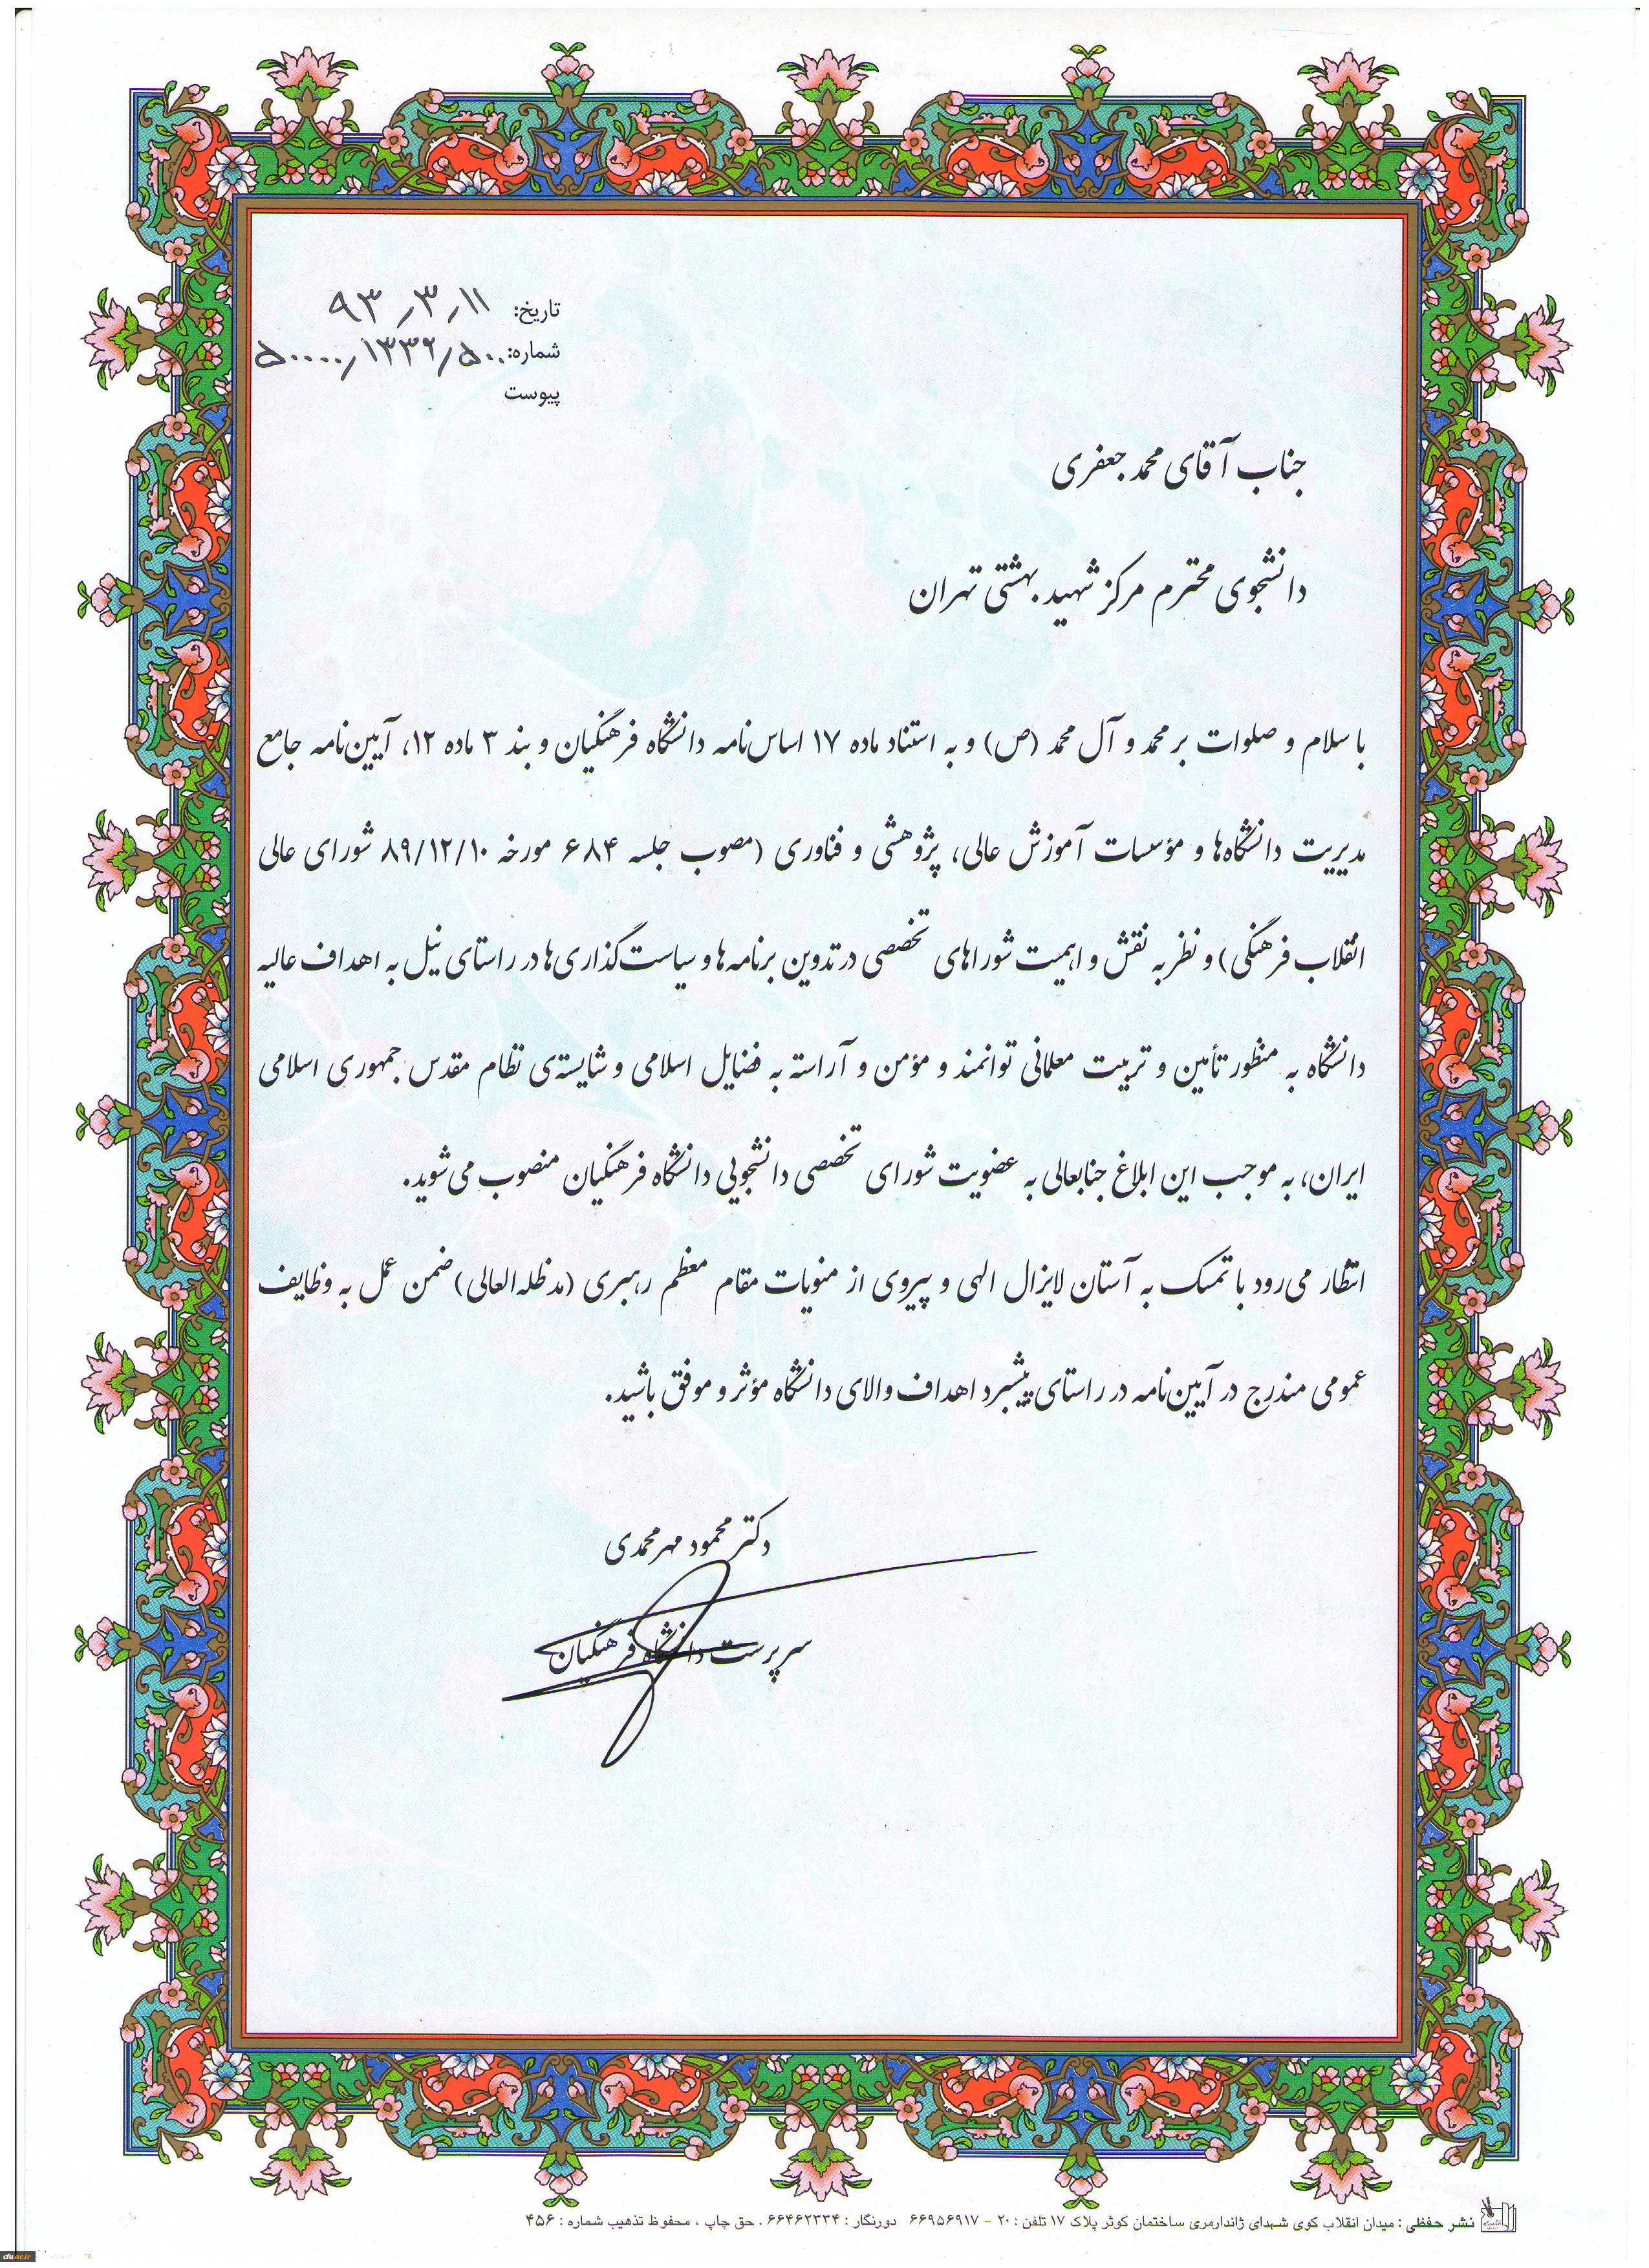 تاریخ: ۹۳٫۳٫۱۱
شماره: ۵۰۰۰۰٫۱۳۳۲٫۵۰۰
پیوست
جناب آقای محمد جعفری
دانشجوی محترم مرکز شهید بهشتی تهران
با سلام و صلوات بر محمد و آل محمد (ص) و به استناد ماده ۱۷ اساس‌نامه دانشگاه فرهنگیان و بند ۳ ماده ۱۲، آیین‌نامه جامع
مدیریت دانشگاه‌ها و مؤسسات آموزش عالی، پژوهشی و فناوری (مصوب جلسه ۶۸۴ مورخه ۸۹/۱۲/۱۰ شورای عالی
انقلاب فرهنگی) و نظر به نقش و اهمیت شوراهای تخصصی در تدوین برنامه‌ها و سیاست‌گذاری‌ها در راستای نیل به اهداف عالیه
دانشگاه به منظور تأمین و تربیت معلمانی توانمند و مؤمن و آراسته به فضایل اسلامی و شایسته‌ی نظام مقدس جمهوری اسلامی
ایران، به موجب این ابلاغ جنابعالی به عضویت شورای تخصصی دانشجویی دانشگاه فرهنگیان منصوب می‌شوید.
انتظار می‌رود با تمسک به آستان لایزال الهی و پیروی از منویات مقام معظم رهبری (مدظله‌العالی) ضمن عمل به وظایف
عمومی مندرج در آیین‌نامه در راستای پیشبرد اهداف والای دانشگاه مؤثر و موفق باشید.
دکتر محمود مهرمحمدی
سرپرست دانشگاه فرهنگیان
نشر حفظی : میدان انقلاب کوی شهدای ژاندارمری ساختمان کوثر پلاک ۱۷ تلفن : ۲۰ - ۶۶۹۵۶۹۱۷ دورنگار : ۶۶۴۶۲۳۳۴ . حق چاپ ، محفوظ تذهیب شماره : ۴۵۶
cfu.ac.ir